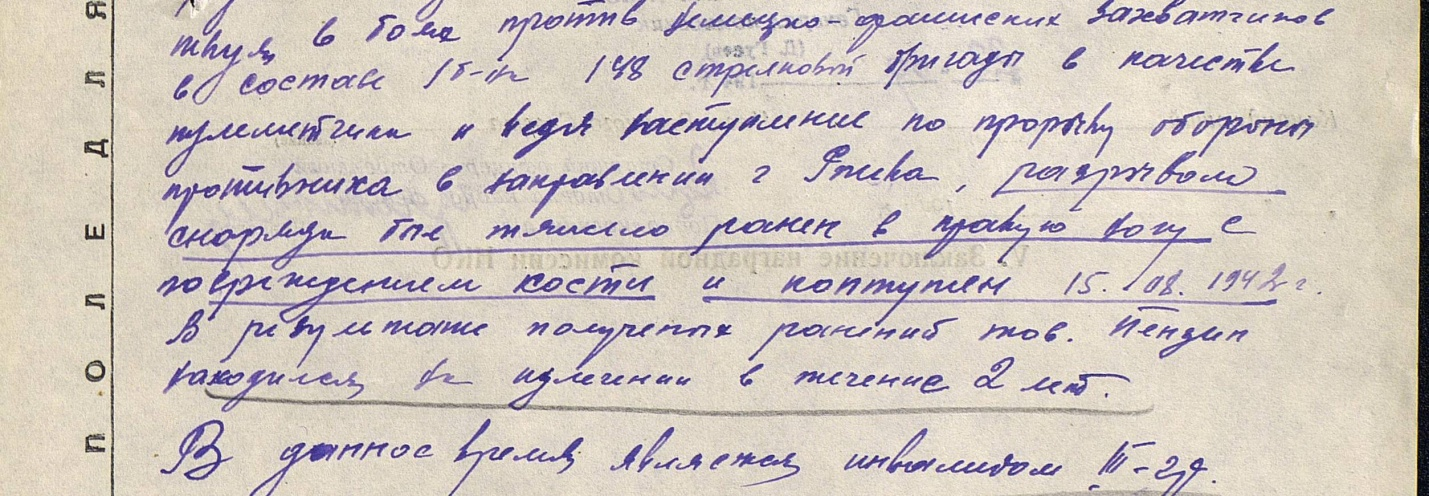 ПОЛЕ ДЛЯ
твуя в боях против немецко-фашистских захватчиков
в составе 148 стрелковой бригады в качестве
пулеметчика и ведя наступление по прорыву обороны
противника в направлении г Ржева, разрывом
снаряда был тяжело ранен в правую ногу с
повреждением кости и контужен 15. 08. 1942 г.
В результате полученых ранений тов. Пендип
находился на излечении в течение 2 лет.
В данное время является инвалидом III-гр.
V. Заключение наградной комиссии НКО